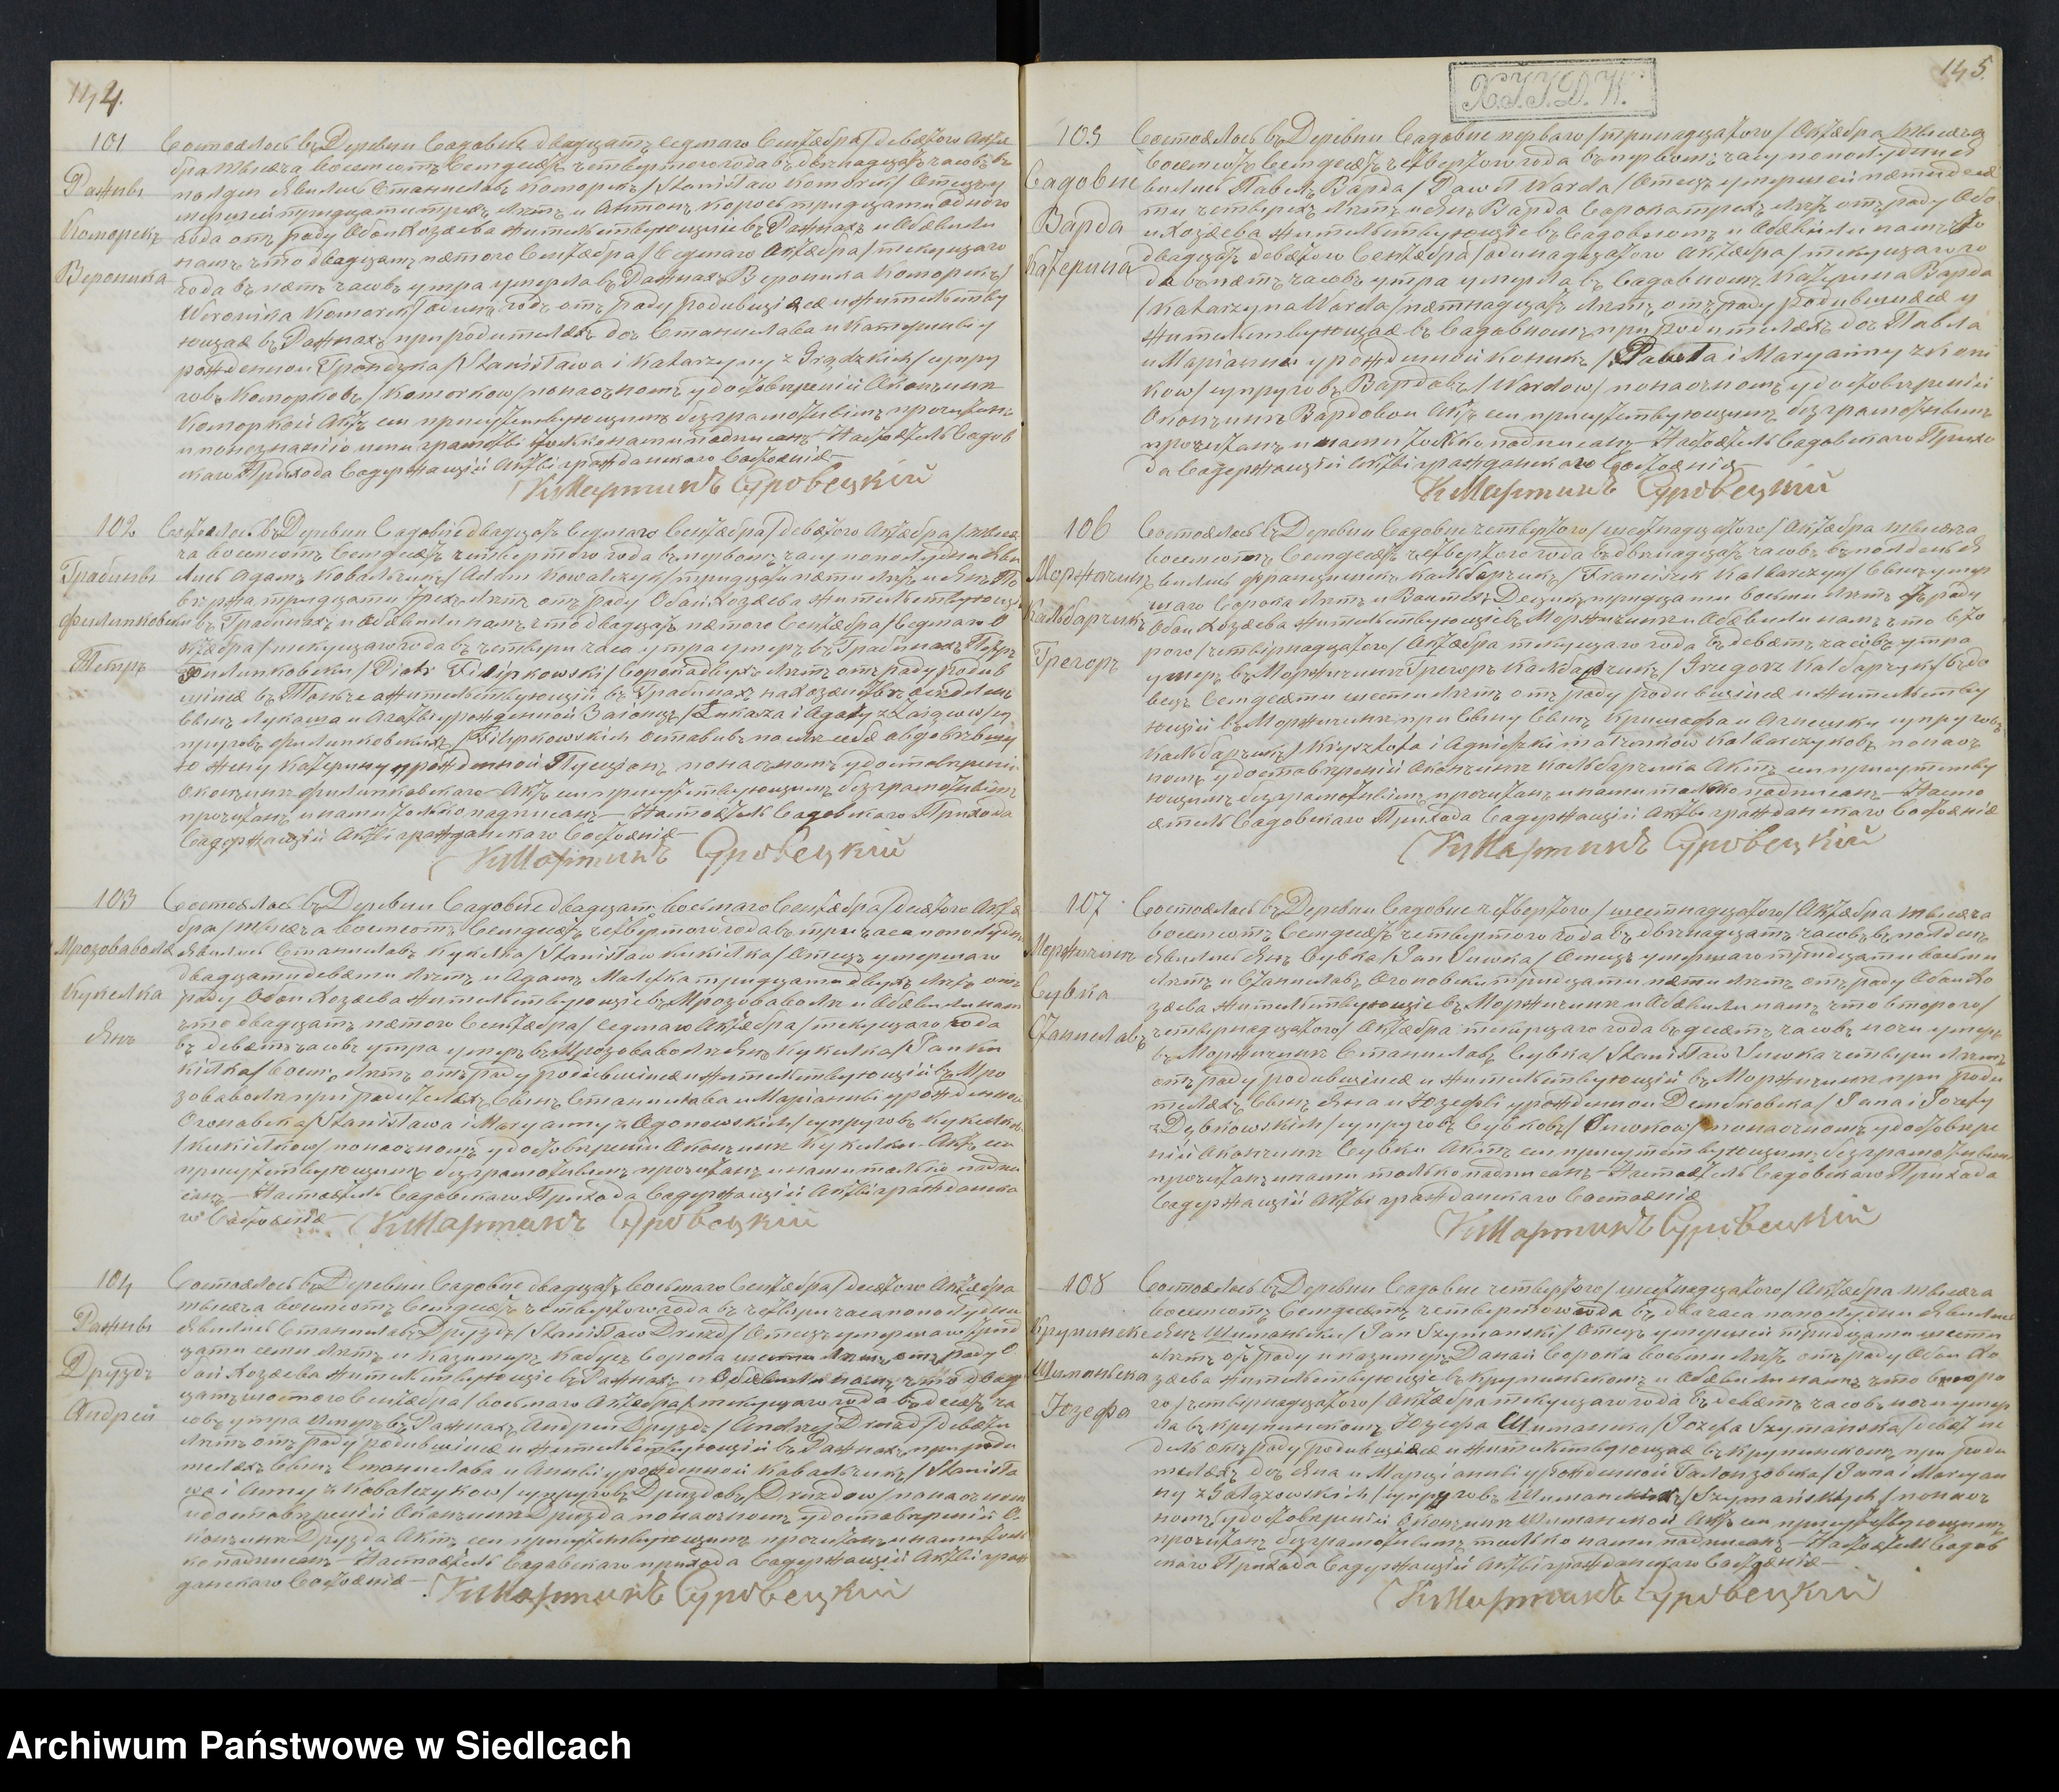 144.
101
Ражны
Коморекъ
Вероника
Состоялось въ Деревни Садовне двадцать седмаго Сентября/девятаго Октя
бря тысяча восемсотъ семдесятъ четвертого года въ двенадцать часовъ въ
полдень явились Станиславъ Коморекъ/Stanisław Komorek/Отецъ у
мершей тридцати трехъ летъ и Антонъ Король тридцати одного
года отъ роду Оба Хозяева жительствующіе въ Ражнахъ и Объявили
намъ что двадцать пятого Сентября/седмаго Октября/текущаго
года въ пять часовъ утра умерла въ Ражнахъ Вероника Коморекъ/
Weronika Komorek/одинъ годъ отъ роду родившаяся и жительству
ющая въ Ражнахъ при родителяхъ дочь Станислава и Катержины у
рожденной Грондзка/Stanisława i Katarzyny z Grądzkich/супру
говъ Коморковъ/Komorkow/по наочномъ удостовереніи о кончине
Коморкой Актъ сей присутствующимъ безграмотнымъ прочитанъ
и по незнанію ими грамоты только нами подписанъ Настоятель Садов
скаго Прихода Содержащій Акты гражданскаго Состоянія
Кс Мартинъ Суровецкій
102
Грабины
Филипковски
Петръ
Состоялось въ Деревни Садовне двадцать седмаго Сентября/девятаго Октября/тыся
ча восемсотъ семдесятъ четвертого года въ первомъ часу пополудни яви
лись Адамъ Ковальчикъ/Adam Kowalczyk/тридцати пяти летъ и Янъ
тридцати трехъ летъ отъ роду Оба Хозяева жительствующіе
въ Грабинахъ и объявили намъ что двадцать пятого Сентября/седмаго О
ктября/текущаго года въ четвери часа утра умеръ въ Грабинахъ Петръ
Филипковски/Piotr Filipkowski/сорока двухъ летъ отъ роду родив
шійся въ и жительствующій въ Грабинахъ на хозяйстве
сынъ Лукаша и Агаты урожденной Заіонцъ/Łukasza i Agaty z Zającow/су
пруговъ Филипковскихъ/Filipkowskich оставивъ по себе овдовевшу
ю жену Катерину урожденной по наочномъ удостовереніи
о кончине Филипковскаго Актъ сей присутствующимъ безграмотнымъ
прочитанъ и нами только подписанъ Настоятель Садовскаго Прихода
Содержащій Акты гражданскаго Состоянія
Кс Мартинъ Суровецкій
103
Мрозоваволя
Кукелка
Янъ
Состоялось въ Деревни Садовне двадцать восьмаго Сентября/десятого Октя
бря/тысяча восемсотъ семдесятъ четвертого года въ три часа пополудни
явились Станиславъ Кукелка/Stanisław Kukiełka/Отецъ умершаго
двадцати девяти летъ и Адамъ тридцати двухъ летъ отъ
роду Оба Хозяева жительствующіе въ Мрозоваволи и Объявили нам
что двадцать пятого Сентября/седмаго Октября/текущаго года
въ девять часовъ утра умеръ въ Мрозоваволи Янъ Кукелка/Jan Ku
kiełka/восемъ летъ отъ роду родившійся и жительствующій въ Мро
зоваволи при родителяхъ сынъ Станислава и Маріанны урожденной
Огоновска/Stanisława i Maryanny z Ogonowskich/супруговъ Кукелковъ
/Kukiełkow/по наочномъ удостовереніи о кончине Кукелки Актъ сей
присутствующимъ безграмотнымъ прочитанъ и нами только подпи
санъ Настоятель Садовскаго Прихода Содержащій Акты гражданска
го Состоянія Кс Мартинъ Суровецкій
104
Ражны
Друздъ
Андрей
Состоялось въ Деревни Садовне двадцать восьмаго Сентября/десятого Октября
тысяча восемсотъ семдесятъ четвертого года въ четвери часа пополудни
явились Станиславъ Друздъ/Stanisław Drozd/Отецъ умершаго трид
цати семи летъ и Казимиръ сорока шести летъ отъ роду О
бай Хозяева жительствующіе въ Ражнахъ и объявили намъ что двад
цать шестого Сентября/восьмаго Октября/текущаго года въ десять ча
совъ утра умеръ въ Ражнахъ Андрей Друздъ/Andrzej Drozd/девяти
летъ отъ роду родившійся и жительствующій въ Ражнахъ при роди
телахъ сынъ Станислава и Анны урожденной Ковальчикъ/Stanisła
wa i Anny z Kowalczykow/супруговъ Друздовъ/Drozdow/по наочном
удостовереніи о кончине Друзда по наочномъ удостовереніи О
кончине Друзда Актъ сей присутствующимъ прочитанъ и нами толь
ко подписанъ Настоятель Садовскаго прихода Содержащій Акты граж
данскаго Состоянія Кс Мартинъ Суровецкій
145.
105
Садовне
Варда
Катерина
Состоялось въ Деревни Садовне перваго/тринадцатого/Октября тысяча
восемсотъ семдесятъ четвертого года въ первомъ часу пополудни я
вились Павелъ Варда/Paweł Warda/Отецъ умершей пятидеся
ти четверехъ летъ и Янъ Варда сорока трехъ летъ отъ роду Оба
и Хозяева жительствующіе въ Садовномъ и Объявили намъ что
двадцать девятого Сентября/одинадцатого Октября/текущаго го
да въ пять часовъ утра умерла въ Садовномъ Катерина Варда
/Katarzyna Warda/пятнадцать летъ отъ роду родившаяся и
жительствующая въ Садовномъ при родителяхъ дочь Павла
и Маріанны урожденной Коникъ/Pawła i Maryanny z Koni
kow/супруговъ Вардовъ/Wardow/по наочномъ удостовереніи
О кончине Вардовой Актъ сей присутствующимъ безграмотнымъ
прочитанъ и нами только подписанъ Настоятель Садовскаго Прихо
да Содержащій Акты гражданскаго Состоянія
Кс Мартинъ Суровецкій
106
Моржичинъ
Кальбарчикъ
Грегоръ
Состоялось въ Деревни Садовне четвертого/шестнадцатого/Октября тысяча
восемсотъ семдесятъ четвертого года въ двенадцать часовъ въ полдень я
вились Францишекъ Кальбарчикъ/Franciszek Kalbarczyk/сынъ умер
шаго сорока летъ и тридцати восьми летъ отъ роду
Оба Хозяева жительствующіе въ Моржичине и Объявили намъ что вто
рого/четвернадцатого/Октября текущаго года въ девять часовъ утра
умеръ въ Моржичине Грегоръ Кальбарчикъ/Grzegorz Kalbarczyk/вдо
вецъ семдесяти шести летъ отъ роду родившійся и жительству
ющій въ Моржичине при сыну сынъ Криштофа и Агнешки супруговъ
Кальбарчикъ/Krysztofa i Agnieszki małżonków Kalbarczyków по наоч
номъ удостовереніи о кончине Кальбарчика Актъ сей присутству
ющимъ безграмотнымъ прочитанъ и нами только подписанъ Насто
ятель Садовскаго Прихода Содержащій Акты гражданскаго Состоянія
Кс Мартинъ Суровецкій
107
Моржичинъ
Сувка
Станиславъ
Состоялось въ Деревни Садовне четвертого/шестнадцатого/Октября тысяча
восемсотъ семдесятъ четвертого года въ двенадцать часовъ въ полдень
явились Янъ Сувка/Jan Suwka/Отецъ умершаго тридцати восьми
летъ и Станиславъ Огоновски тридцати пяти летъ отъ роду Оба Хо
зяева жительствующіе въ Моржичине и Объявили намъ что второго/
четвернадцатого/Октября текущаго года въ десять часовъ ночи умеръ
въ Моржичине Станиславъ Сувка/Stanisław Suwka четвери летъ
отъ роду родившійся и жительствующій въ Моржичине при роди
телахъ сынъ Яна и Юзефы урожденной Дембковска/Jana i Jozefy
z Dębkowskich/супруговъ Сувковъ/Suwkow/по наочномъ удостовере
ніи о кончине Сувки Актъ сей присутствующимъ безграмотнымъ
прочитанъ и нами только подписанъ Настоятель Садовскаго Прихода
Содержащій Акты гражданскаго Состоянія
Кс Мартинъ Суровецкій
108
Крупинске
Шиманьска
Юзефа
Состоялось въ Деревни Садовне четвертого/шестнадцатого/Октября тысяча
восемсотъ семдесятъ четвертого года въ два часа пополудни явились
Янъ Шиманьски/Jan Szymanski/Отецъ умершей тридцати шести
летъ отъ роду и Казимеръ сорока восьми летъ отъ роду Оба Хо
зяева жительствующіе въ Крупинскомъ и Объявили намъ что второ
го/четвернадцатого/Октября текущаго года въ девять часовъ ночи умер
ла въ Крупинскомъ Юзефа Шиманска/Jozefa Szymańska/девять не
дель отъ роду родившаяся и жительствующая въ Крупинскомъ при роди
телахъ дочь Яна и Марціанны урожденной Галонзовска/Jana i Maryan
ny z Gałązowskich/супруговъ Шиманскихъ/Szymańskych/по наоч
номъ удостовереніи о кончине Шиманской Актъ сей присутствующимъ
прочитанъ безграмотнымъ только нами подписанъ Настоятель Садов
скаго Прихода Содержащій Акты гражданскаго Состоянія
Кс Мартинъ Суровецкій
Archiwum Państwowe w Siedlcach